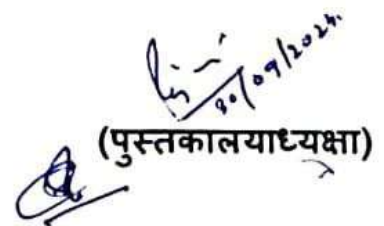 30/09/2024.
(पुस्तकालयाध्यक्षा)